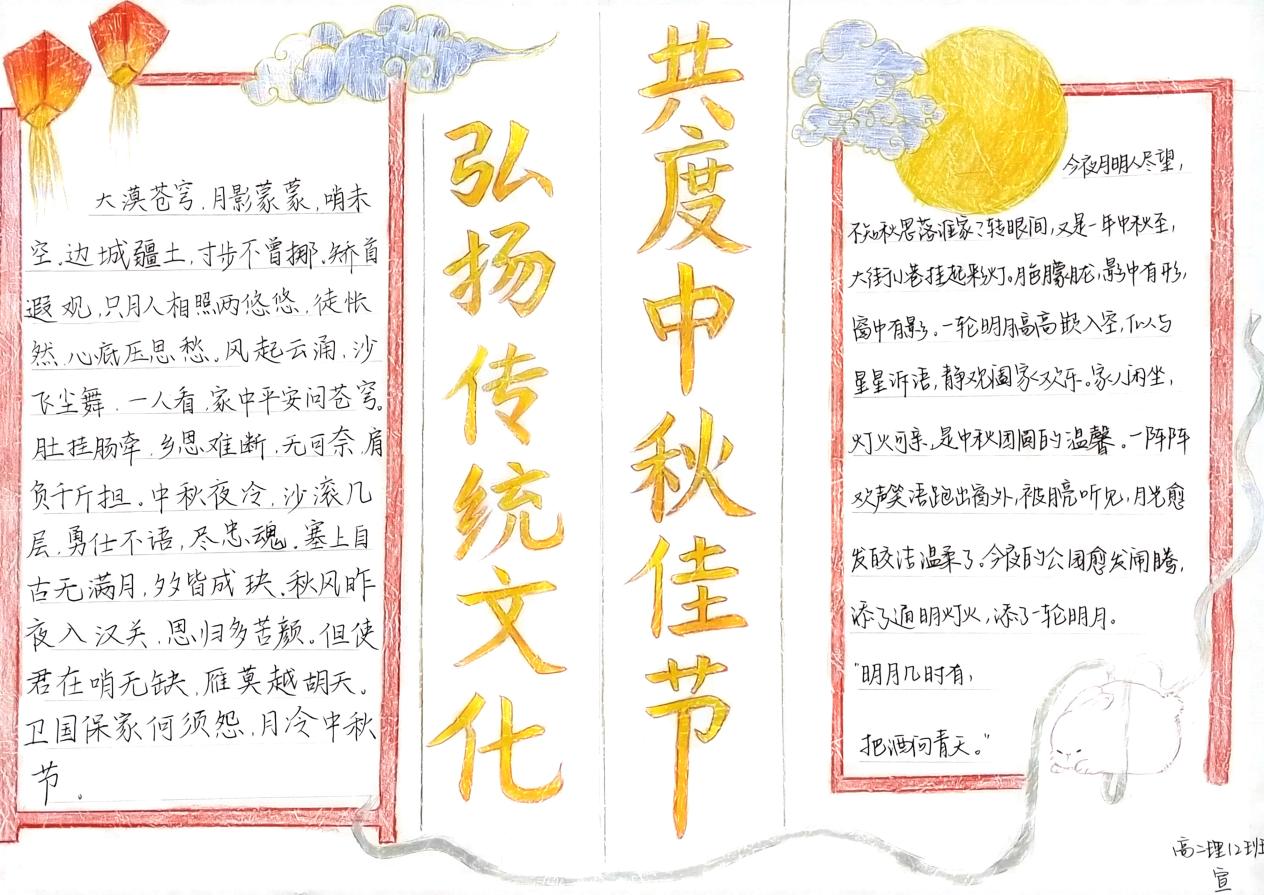 大漠苍穹,月影蒙蒙,哨未
空.边城疆土,寸步不曾挪.矫首
遐观,只月人相照两悠悠,徒怅
然,心底压思愁。风起云涌,沙
飞尘舞.一人看,家中平安问苍穹。
肚挂肠牵,乡思难断,无可奈,肩
负千斤担。中秋夜冷,沙滚几
层,勇仕不语,尽忠魂.塞上自
古无满月,夕夕皆成玦.秋风昨
夜入汉关,思归多苦颜。但使
君在哨无缺,雁莫越胡天。
卫国保家何须怨,月冷中秋
节。
弘扬传统文化
共度中秋佳节
今夜月明人尽望,
不知秋思落谁家?转眼间,又是一年中秋至,
大街小巷挂起彩灯。月色朦胧,影中有形,
窗中有影。一轮明月高高嵌入空,似与
星星诉语,静观阖家欢乐。家人闲坐,
灯火可亲,是中秋团圆的温馨。一阵阵
欢声笑语跑出窗外,被月亮听见,月光愈
发皎洁温柔了。今夜的公园愈发闹腾,
添了通明灯火,添了一轮明月。
"明月几时有,
把酒问青天。"
高二理12班
宣